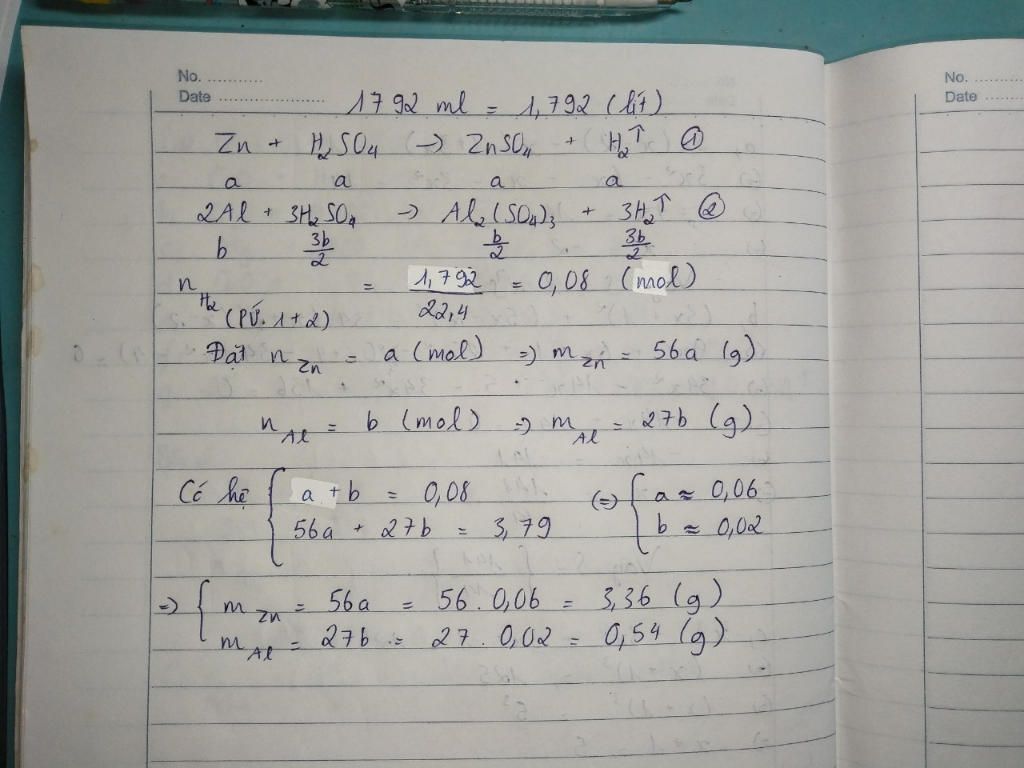 No. ...........
Date ......................
1792 ml = 1,792 (lít)
Zn + H₂SO₄ → ZnSO₄ + H₂↑ ①
a a a a
2Al + 3H₂SO₄ → Al₂(SO₄)₃ + 3H₂↑ ②
b 3b/2 b/2 3b/2
n H₂ (PƯ. 1+2) = 1,792/22,4 = 0,08 (mol)
Đặt n Zn = a (mol) => m Zn = 56a (g)
n Al = b (mol) => m Al = 27b (g)
Có hệ { a + b = 0,08 (=) { a ≈ 0,06
56a + 27b = 3,79 b ≈ 0,02
=> { m Zn = 56a = 56 . 0,06 = 3,36 (g)
m Al = 27b = 27 . 0,02 = 0,54 (g)
No. ...........
Date ...........